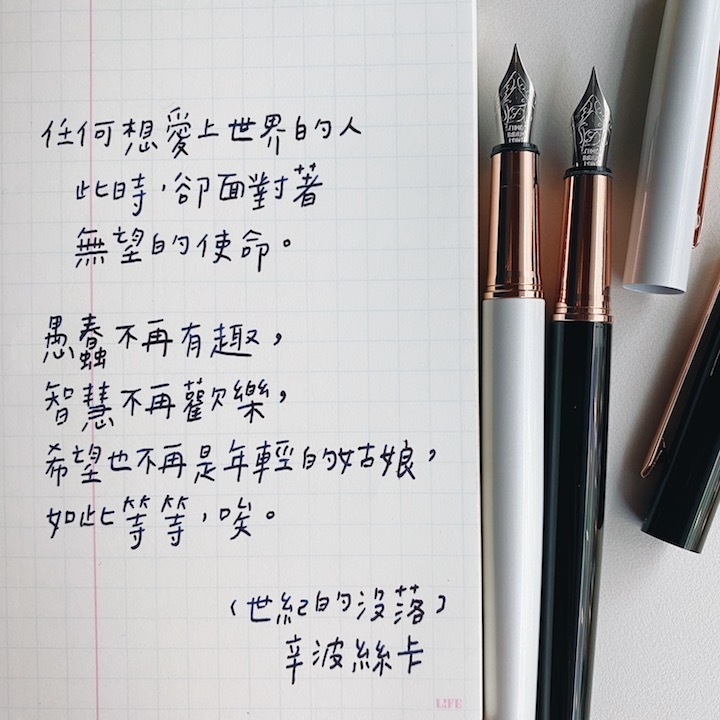 任何想愛上世界的人
此時,卻面對著
無望的使命。
愚蠢不再有趣,
智慧不再歡樂,
希望也不再是年輕的姑娘,
如此等等,唉。
(世紀的沒落)
辛波絲卡
LIFE